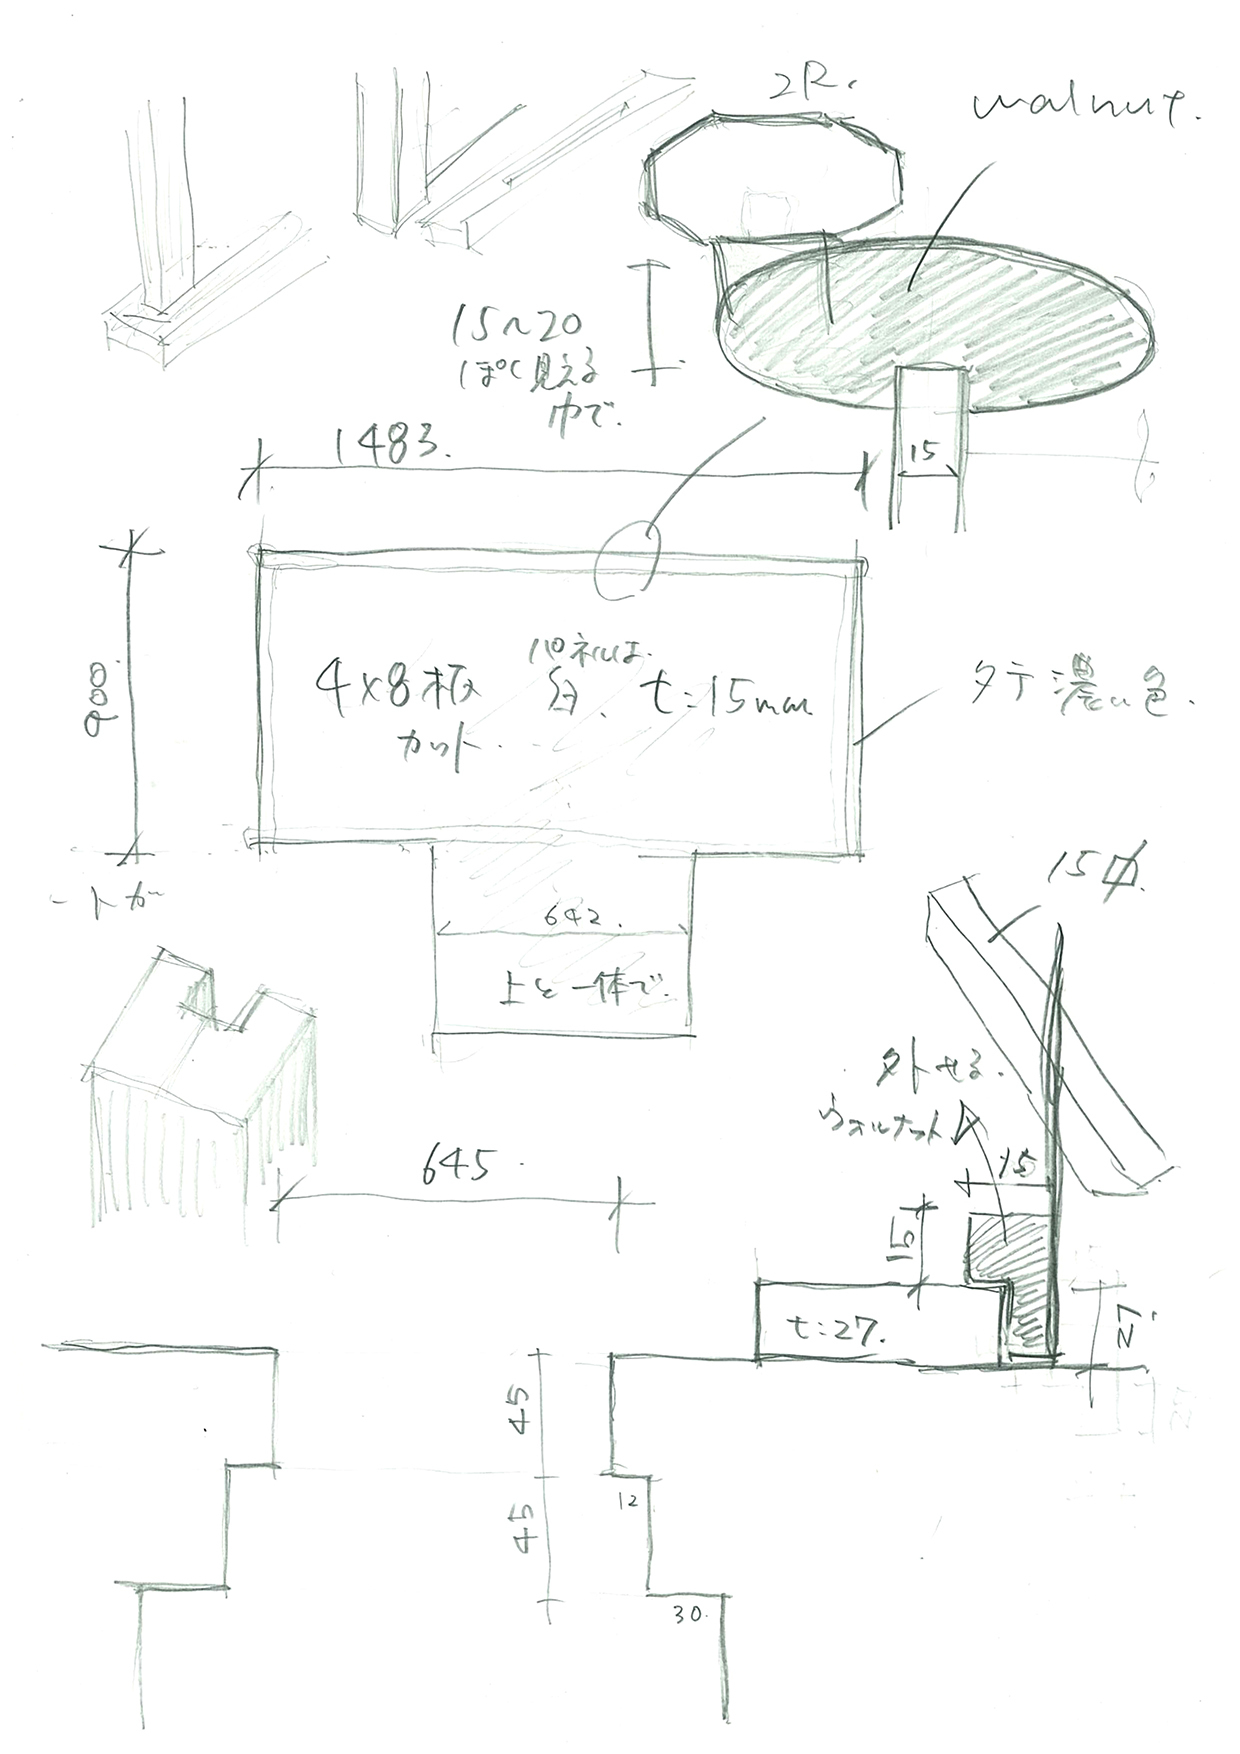 2R.
walnut.
15~20
ぽく見える
巾で.
1483.
15
900.
パネルは.
4×8板 白. t=15mm
カット.
タテ濃い色.
642.
上と一体で.
15
外せる.
ウォルナット
645.
15
15
t=27.
27.
45
12
45
30.